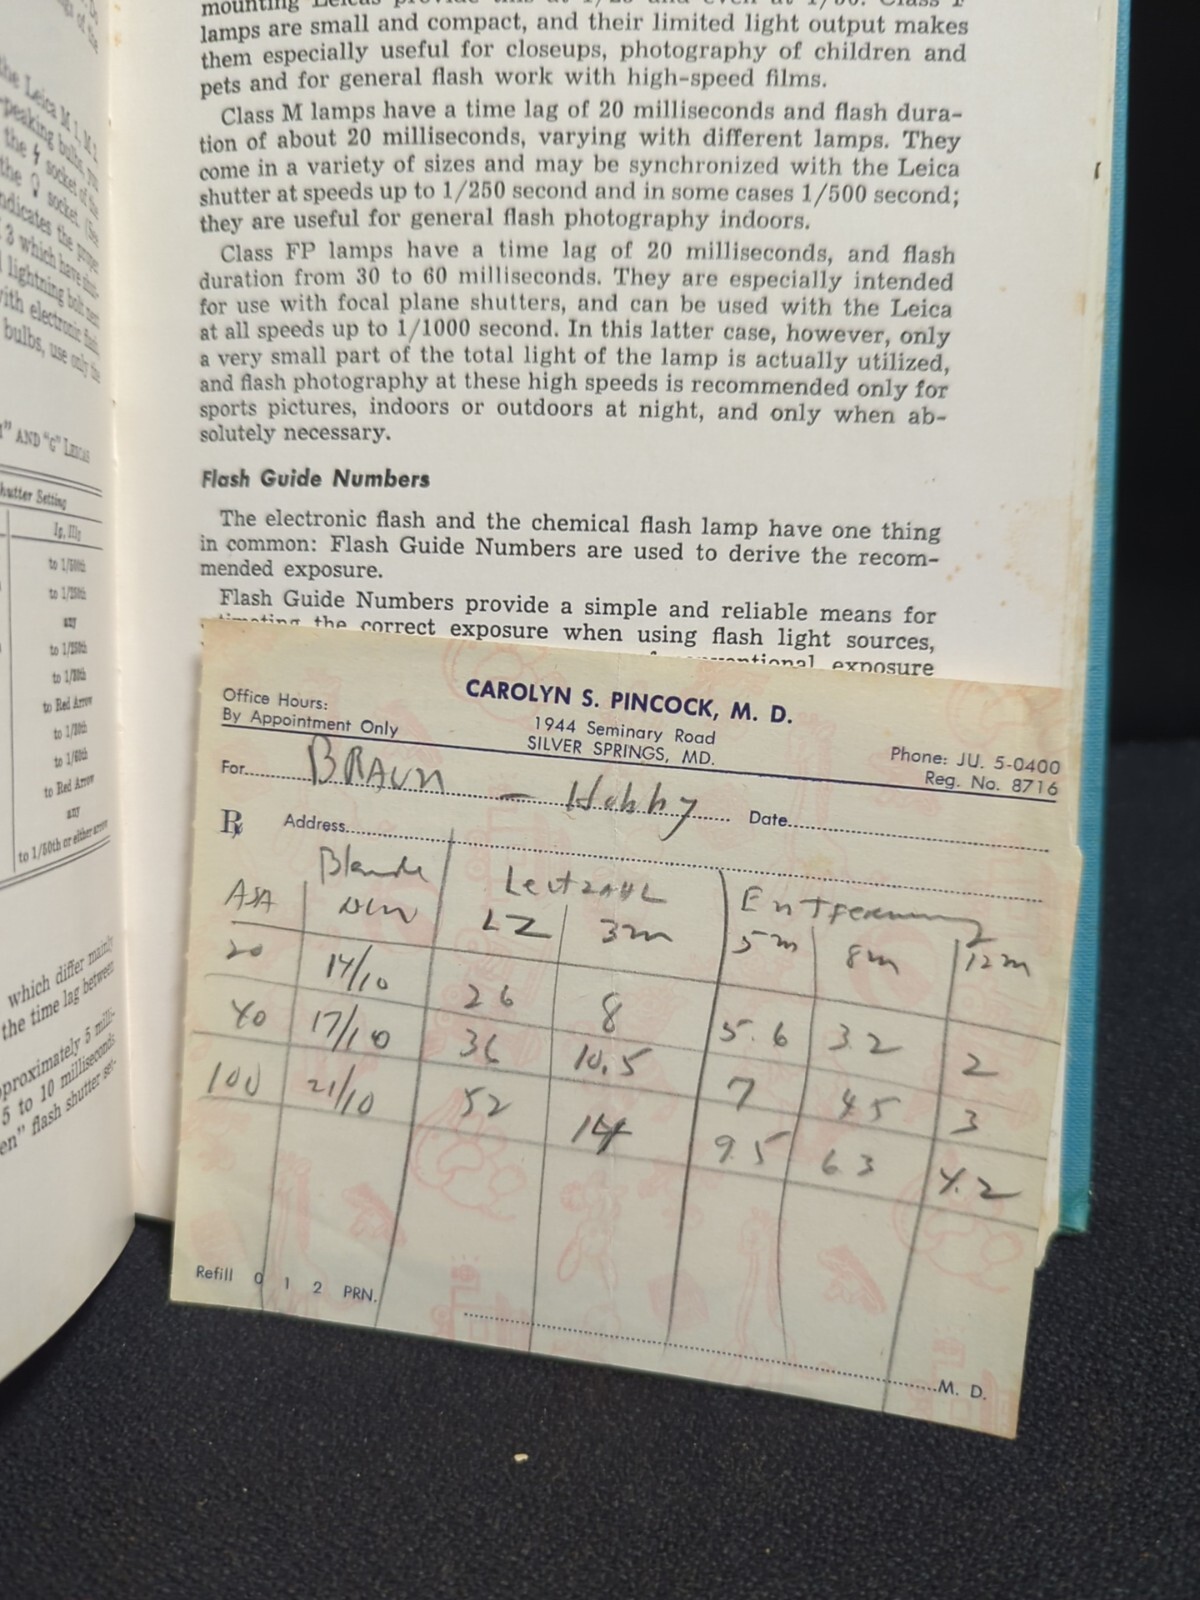 mounting Leicas provide this at 1/25 and even at 1/50. Class F
lamps are small and compact, and their limited light output makes
them especially useful for closeups, photography of children and
pets and for general flash work with high-speed films.
Class M lamps have a time lag of 20 milliseconds and flash dura-
tion of about 20 milliseconds, varying with different lamps. They
come in a variety of sizes and may be synchronized with the Leica
shutter at speeds up to 1/250 second and in some cases 1/500 second;
they are useful for general flash photography indoors.
Class FP lamps have a time lag of 20 milliseconds, and flash
duration from 30 to 60 milliseconds. They are especially intended
for use with focal plane shutters, and can be used with the Leica
at all speeds up to 1/1000 second. In this latter case, however, only
a very small part of the total light of the lamp is actually utilized,
and flash photography at these high speeds is recommended only for
sports pictures, indoors or outdoors at night, and only when ab-
solutely necessary.
Flash Guide Numbers
The electronic flash and the chemical flash lamp have one thing
in common: Flash Guide Numbers are used to derive the recom-
mended exposure.
Flash Guide Numbers provide a simple and reliable means for
the correct exposure when using flash light sources,
exposure
CAROLYN S. PINCOCK, M. D.
Office Hours:
By Appointment Only
1944 Seminary Road
SILVER SPRINGS, MD.
Phone: JU. 5-0400
Reg. No. 8716
For BRAUN — Hobby Date
Rx Address
Blende Leitzahl Entfernung
ASA DIN LZ 3m 5m 8m 12m
20 14/10 26 8 5.6 3.2 2
40 17/10 36 10.5 7 4.5 3
100 21/10 52 14 9.5 6.3 4.2
Refill 0 1 2 PRN.
M. D.
the Leica M 1, M 2,
-peaking bulbs, you
the socket of the
the socket. (See
ndicates the proper
3 which have shut-
lightning bolt next
with electronic flash,
bulbs, use only the
" AND "G" LEICAS
hutter Setting
Ig, IIIg
to 1/50th
to 1/250th
any
to 1/250th
to 1/30th
to Red Arrow
to 1/30th
to 1/60th
to Red Arrow
any
to 1/50th or either arrow
which differ mainly
the time lag between
pproximately 5 milli-
5 to 10 milliseconds
en" flash shutter set-